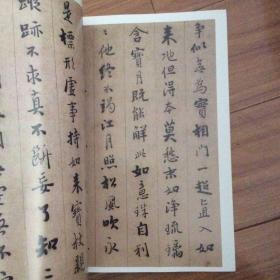 爭似無為實相門一超直入如
來地但得本莫愁末如淨琉璃
含寶月既能解此如意珠自利
〻他終不竭江月照松風吹永
是標形虛事持如來寶杖親
蹤跡不求真不斷妄了知二